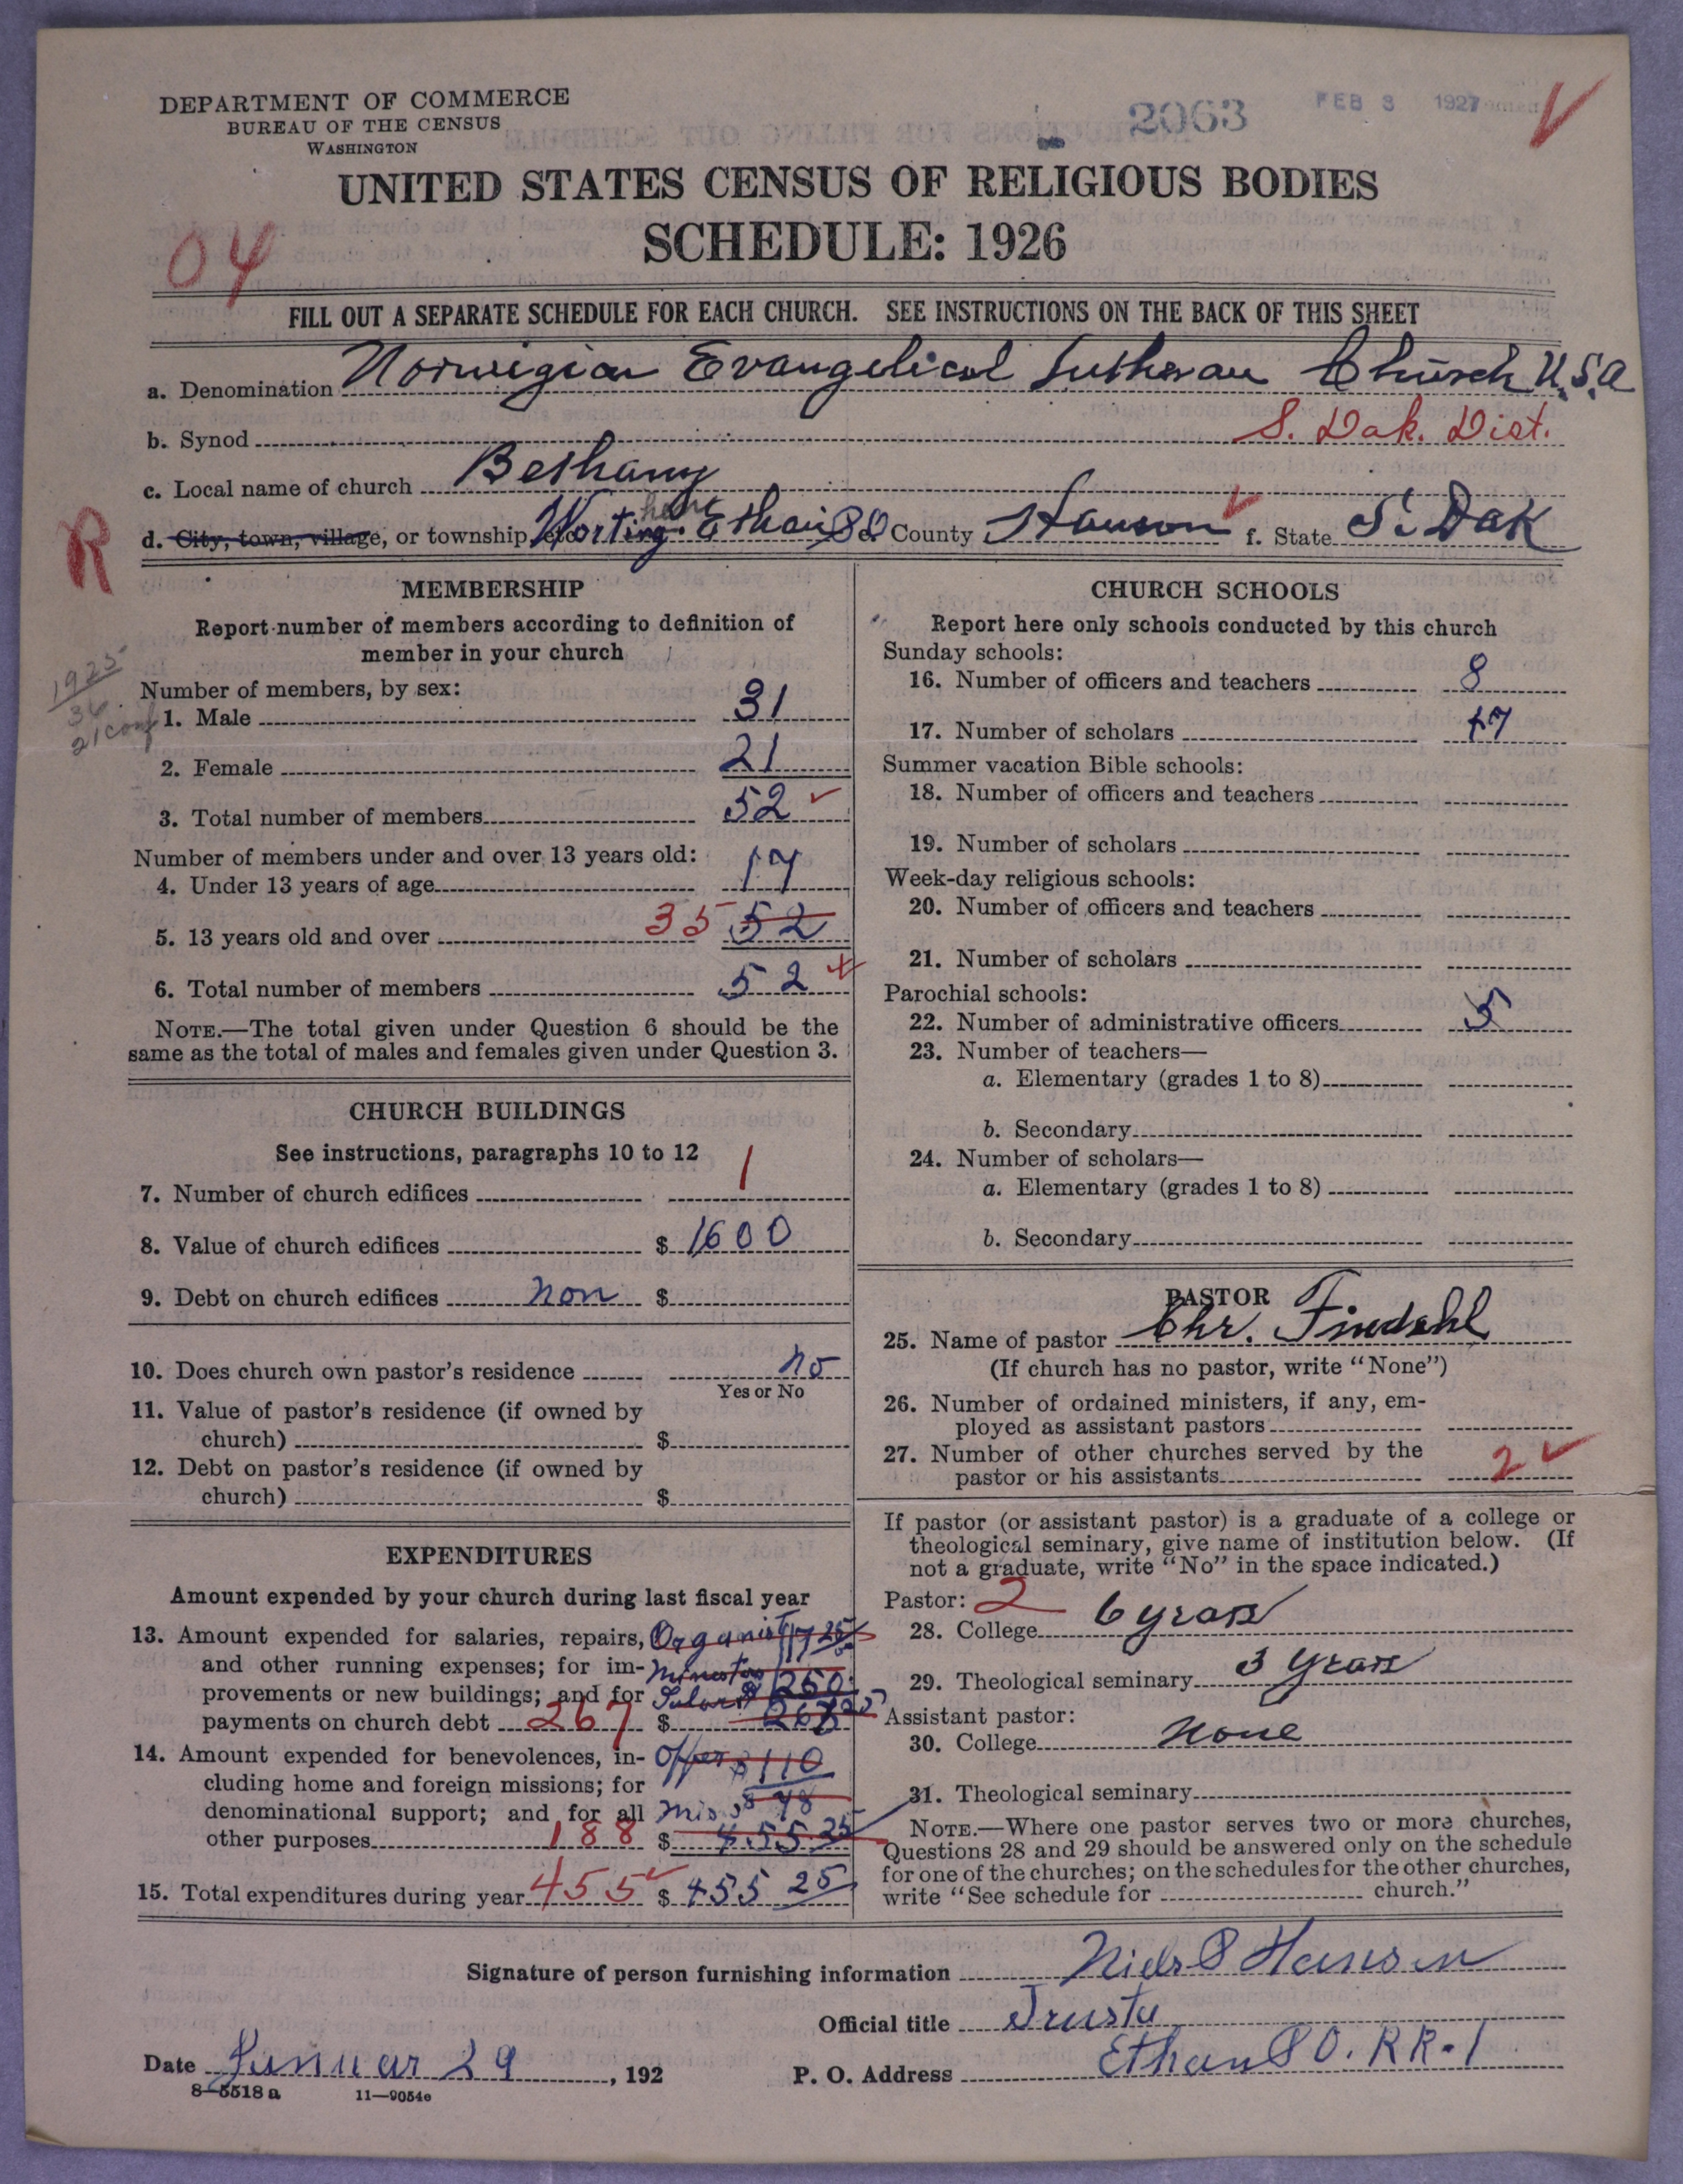 DEPARTMENT OF COMMERCE
BUREAU OF THE CENSUS
WASHINGTON
2063
FEB 3 1927
UNITED STATES CENSUS OF RELIGIOUS BODIES
SCHEDULE: 1926
04
FILL OUT A SEPARATE SCHEDULE FOR EACH CHURCH. SEE INSTRUCTIONS ON THE BACK OF THIS SHEET
a. Denomination Norwigian Evangelical Lutheran Church U.S.A
b. Synod S. Dak. Dist.
c. Local name of church Bethany
R
d. City, town, village, or township, etc. Worthing. Ethan PO e. County Hanson f. State S. Dak
MEMBERSHIP
Report number of members according to definition of
member in your church
1925
36
21 conf
Number of members, by sex:
1. Male 31
2. Female 21
3. Total number of members 52
Number of members under and over 13 years old:
4. Under 13 years of age 17
5. 13 years old and over 35 52
6. Total number of members 52
NOTE.—The total given under Question 6 should be the
same as the total of males and females given under Question 3.
CHURCH BUILDINGS
See instructions, paragraphs 10 to 12
7. Number of church edifices 1
8. Value of church edifices $ 1600
9. Debt on church edifices non $
10. Does church own pastor's residence no
Yes or No
11. Value of pastor's residence (if owned by
church) $
12. Debt on pastor's residence (if owned by
church) $
EXPENDITURES
Amount expended by your church during last fiscal year
13. Amount expended for salaries, repairs, Organist 17 25
and other running expenses; for im- Minester 250
provements or new buildings; and for
payments on church debt 267 $ 267 25
14. Amount expended for benevolences, in- Offer $110
cluding home and foreign missions; for
denominational support; and for all Mis $ 78
other purposes 188 $ 455 25
15. Total expenditures during year 455 $ 455 25
CHURCH SCHOOLS
Report here only schools conducted by this church
Sunday schools:
16. Number of officers and teachers 8
17. Number of scholars 47
Summer vacation Bible schools:
18. Number of officers and teachers
19. Number of scholars
Week-day religious schools:
20. Number of officers and teachers
21. Number of scholars
Parochial schools:
22. Number of administrative officers 5
23. Number of teachers—
a. Elementary (grades 1 to 8)
b. Secondary
24. Number of scholars—
a. Elementary (grades 1 to 8)
b. Secondary
PASTOR
25. Name of pastor Chr. Findahl
(If church has no pastor, write "None")
26. Number of ordained ministers, if any, em-
ployed as assistant pastors
27. Number of other churches served by the
pastor or his assistants 2
If pastor (or assistant pastor) is a graduate of a college or
theological seminary, give name of institution below. (If
not a graduate, write "No" in the space indicated.)
Pastor: 2
28. College 6 years
29. Theological seminary 3 years
Assistant pastor:
30. College None
31. Theological seminary
NOTE.—Where one pastor serves two or more churches,
Questions 28 and 29 should be answered only on the schedule
for one of the churches; on the schedules for the other churches,
write "See schedule for church."
Signature of person furnishing information Niels P Hansen
Official title Truste
Date Januar 29, 192
P. O. Address Ethan P O. RR. 1
8-5518 a 11—9054e